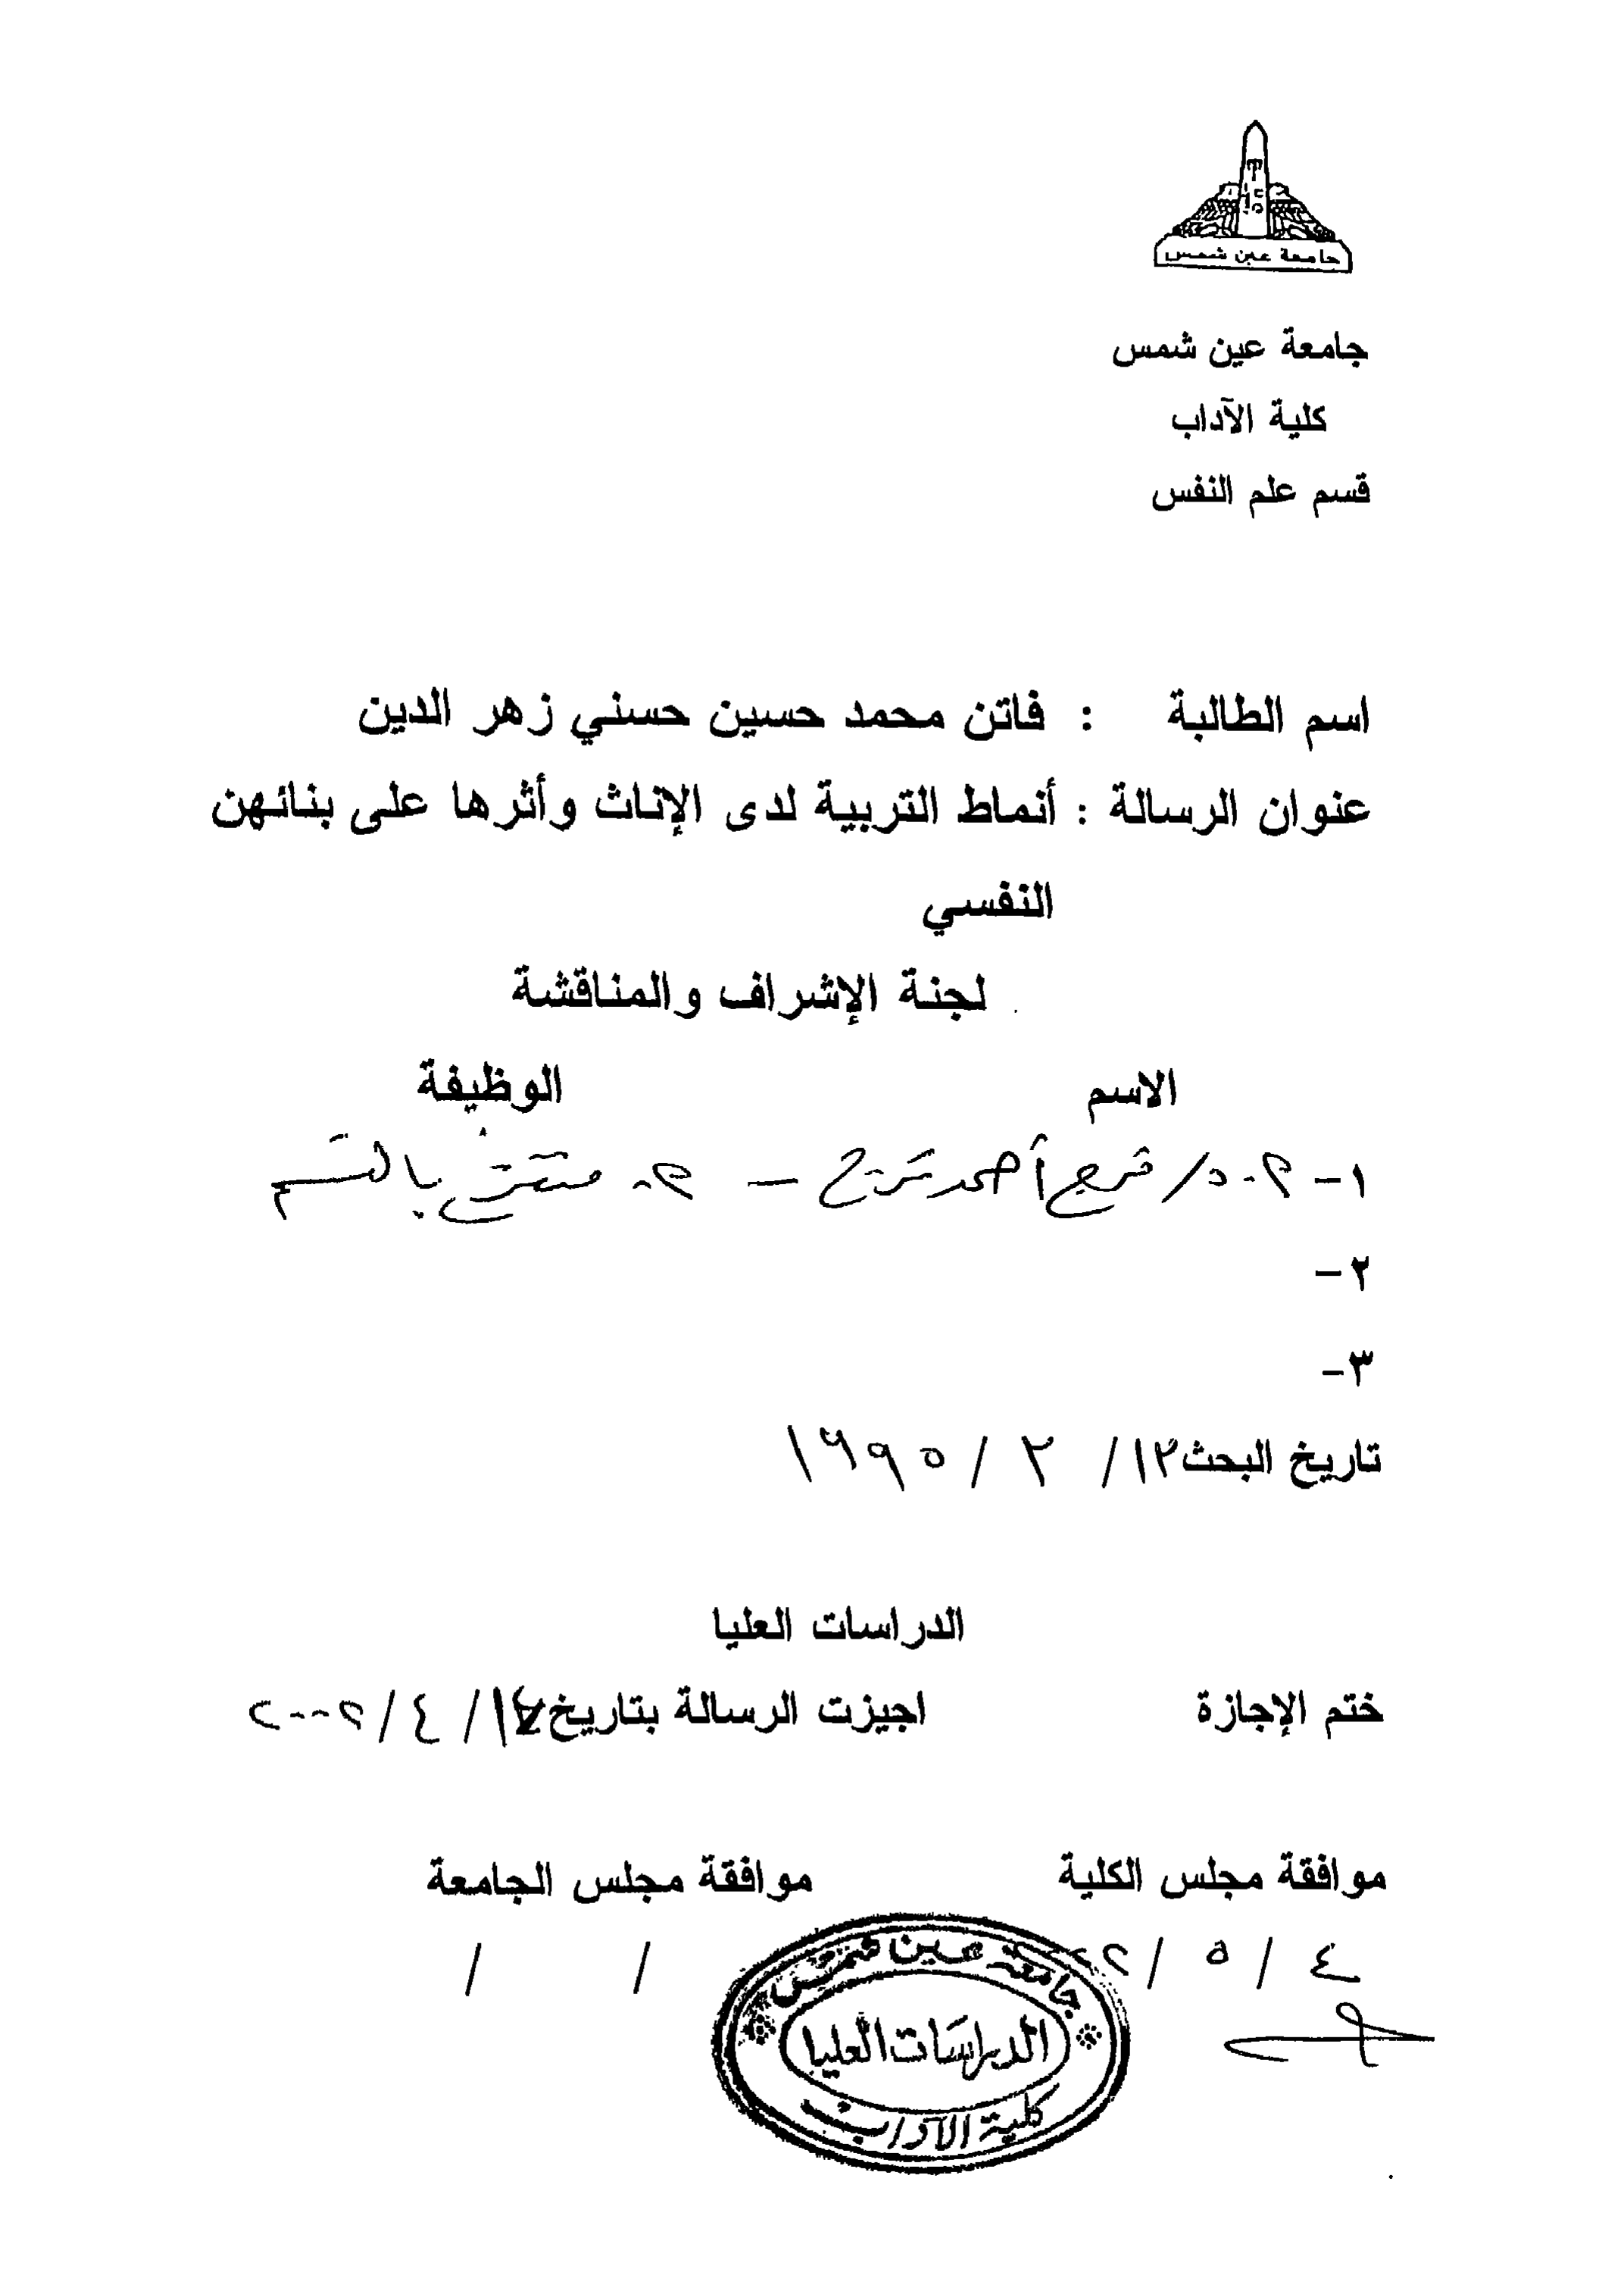 جامعة عين شمس
جامعة عين شمس
كلية الآداب
قسم علم النفس
اسم الطالبة : فاتن محمد حسين حسني زهر الدين
عنوان الرسالة : أنماط التربية لدى الإناث وأثرها على بنائهن
النفسي
لجنة الإشراف والمناقشة
الاسم الوظيفة
١- د/ فرج أحمد فرج - متفرغ بالقسم
٢-
٣-
تاريخ البحث ١٢/ ٢ / ١٩٩٥
الدراسات العليا
ختم الإجازة اجيزت الرسالة بتاريخ / ٤ /
موافقة مجلس الكلية موافقة مجلس الجامعة
٤ / ٥ / / /
جامعة عين شمس
الدراسات العليا
كلية الآداب